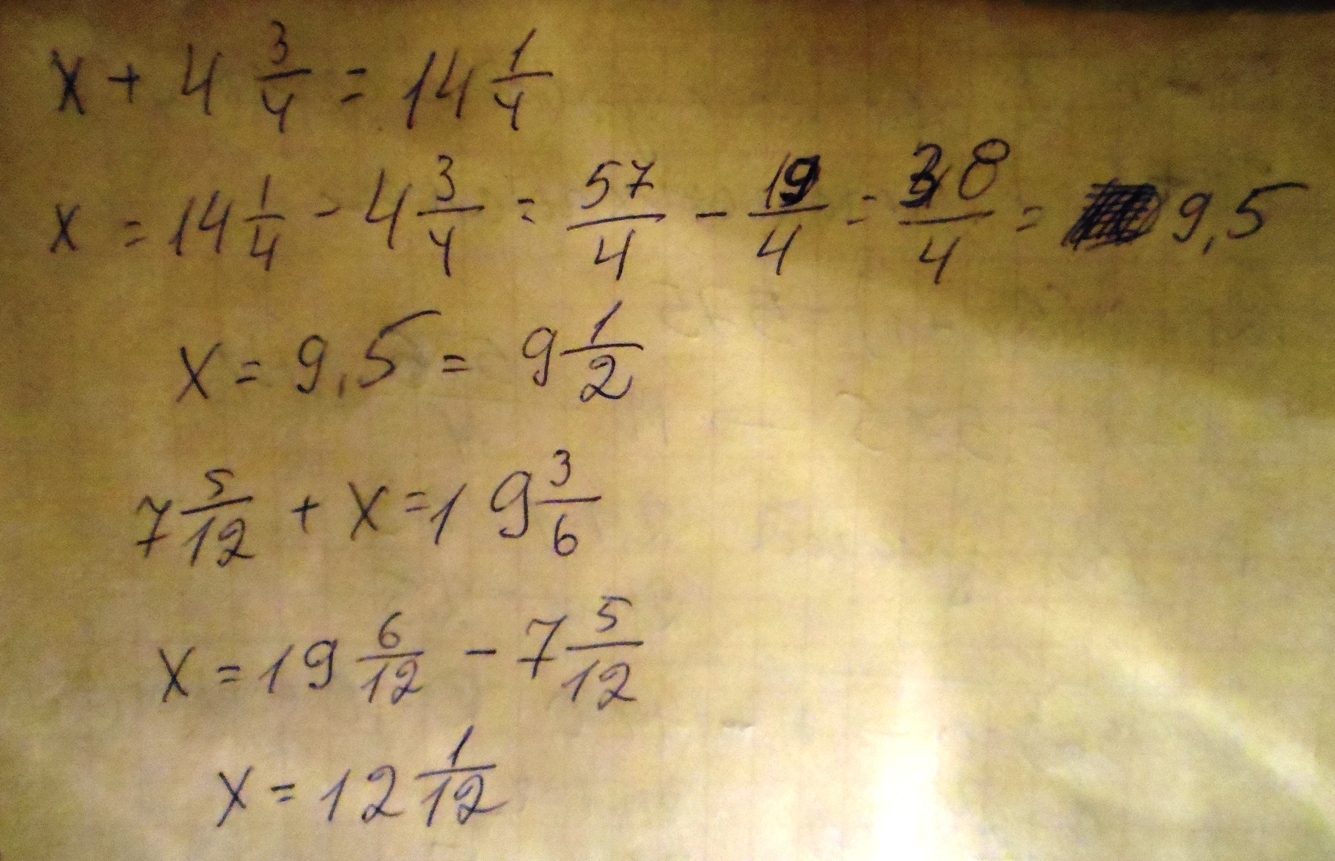 x + 4 3/4 = 14 1/4
x = 14 1/4 - 4 3/4 = 57/4 - 19/4 = 38/4 = 9,5
x = 9,5 = 9 1/2
7 5/12 + x = 19 3/6
x = 19 6/12 - 7 5/12
x = 12 1/12